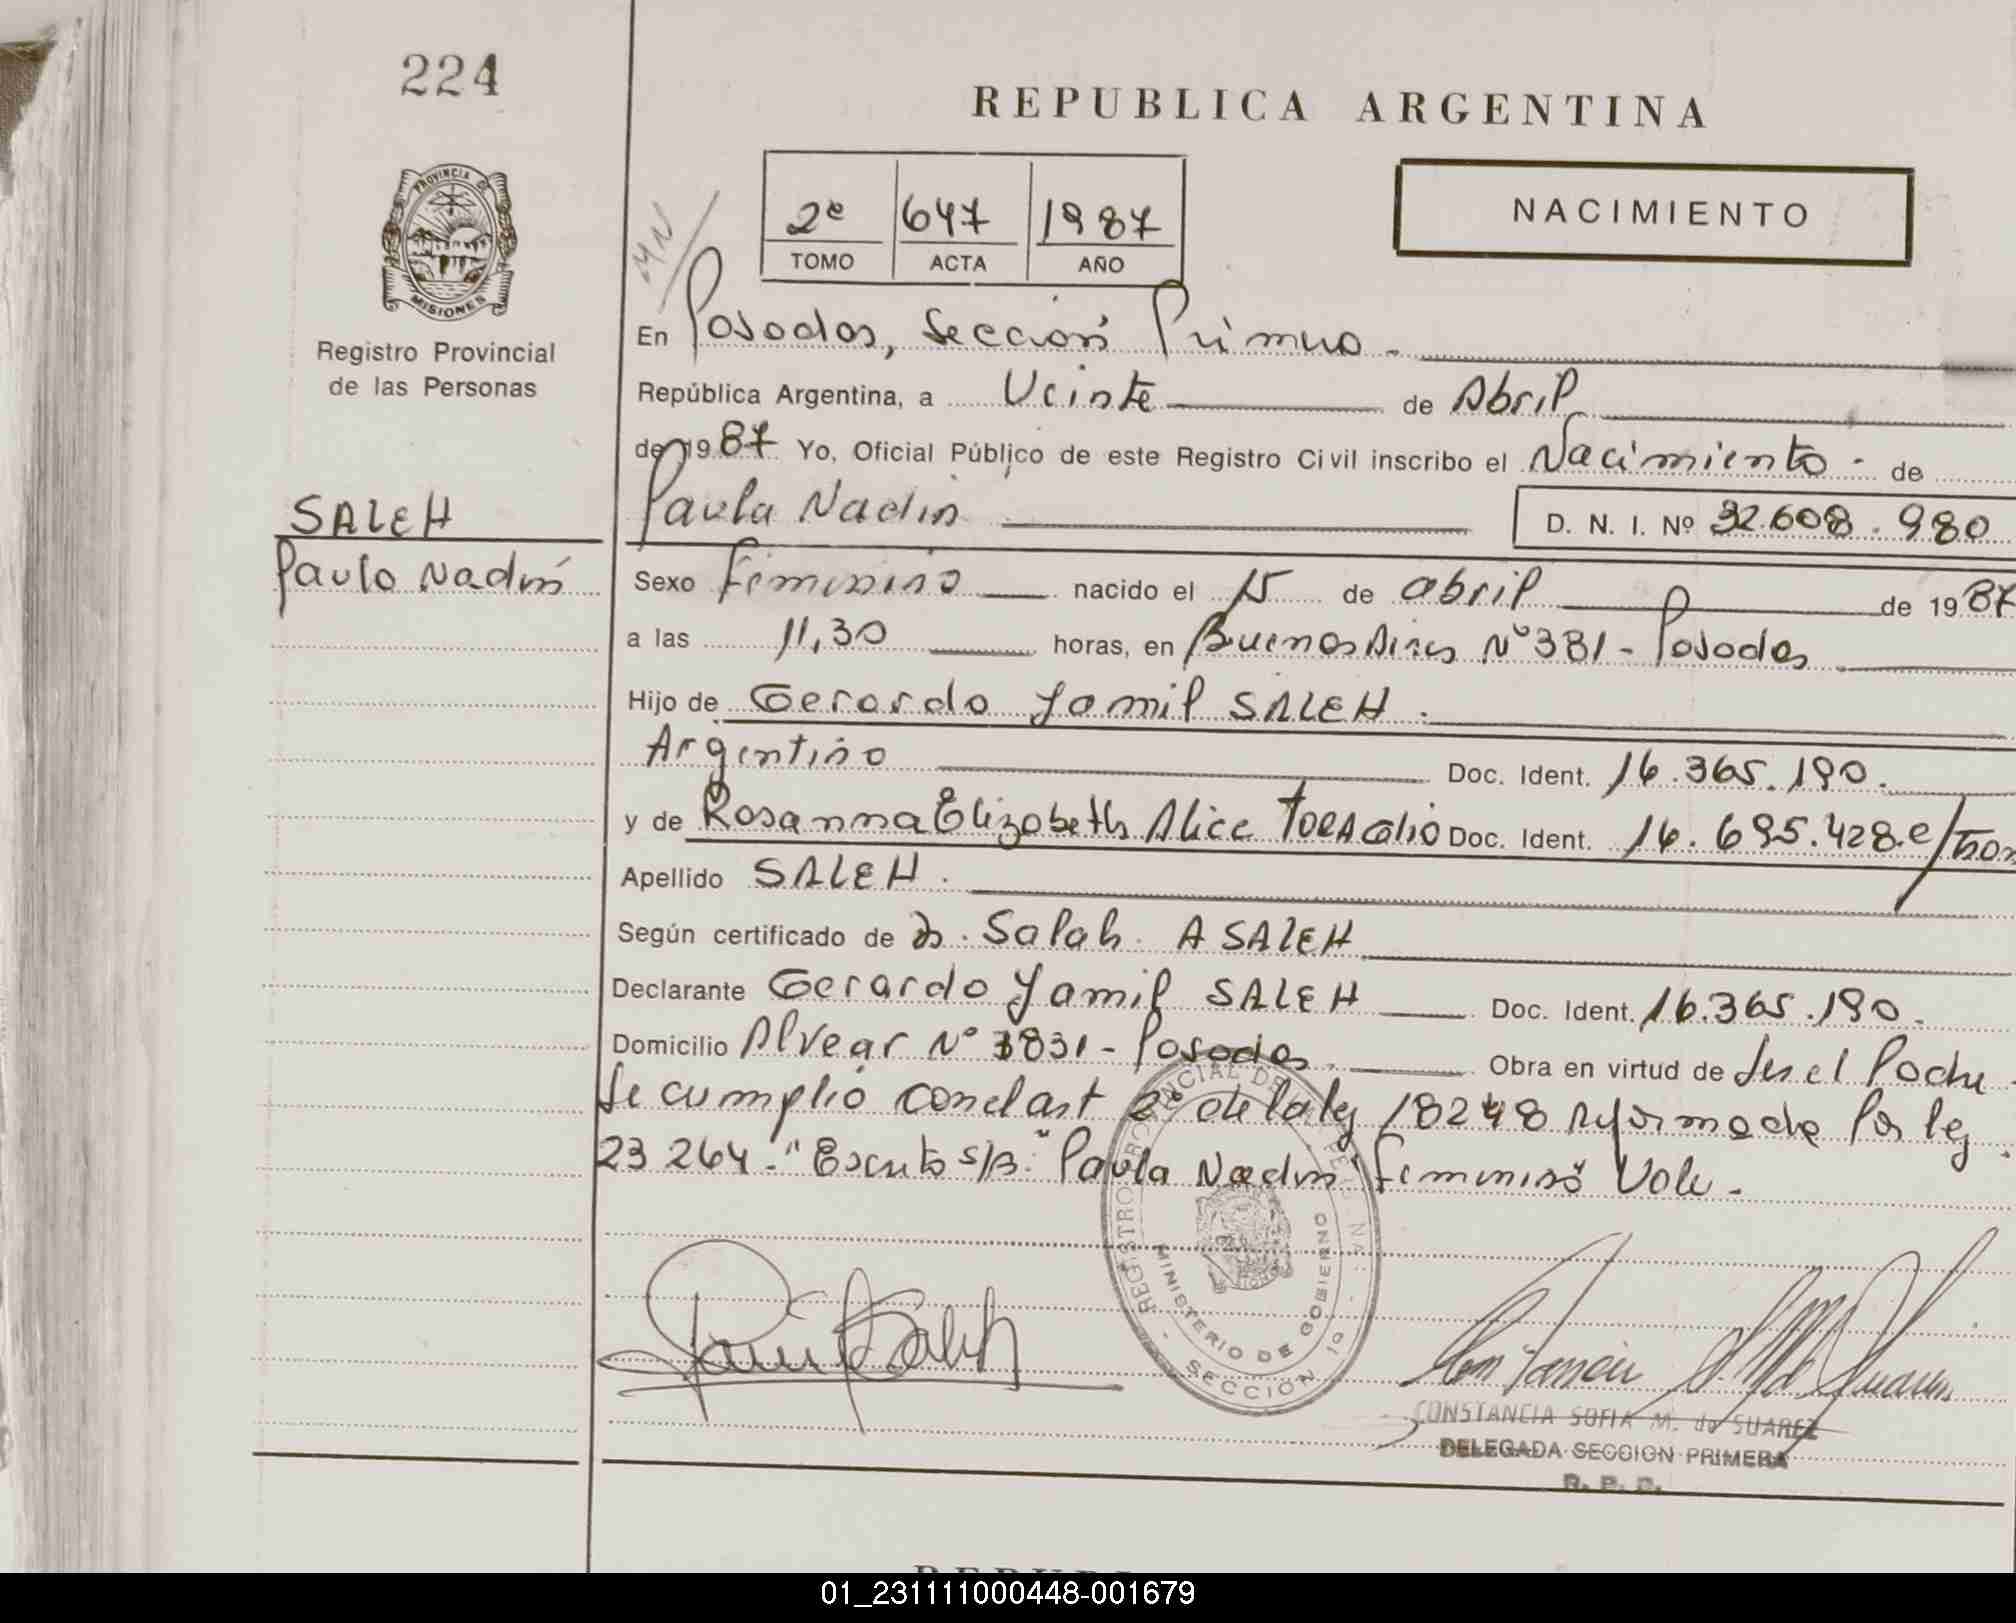 224
REPUBLICA ARGENTINA
PROVINCIA DE
MISIONES
Registro Provincial
de las Personas
2º 647 1987
TOMO ACTA AÑO
NACIMIENTO
En Posadas, Sección Primera.
República Argentina, a Veinte de Abril
de 1987 Yo, Oficial Público de este Registro Civil inscribo el Nacimiento - de
SALEH
Paula Nadin
Paula Nadin D. N. I. Nº 32.608.980
Sexo Femenino nacido el 15 de abril de 1987
a las 11,30 horas, en Buenos Aires Nº 381 - Posadas
Hijo de Gerardo Yamil SALEH.
Argentino Doc. Ident. 16.365.190.
y de Rosanna Elizabeth Alice Doc. Ident. 16.695.428.
Apellido SALEH.
Según certificado de Dr. Salah. A SALEH
Declarante Gerardo Yamil SALEH Doc. Ident. 16.365.190.
Domicilio Alvear Nº 3831 - Posadas. Obra en virtud de Ser el Padre.
Se cumplió con el art 2º de la ley 18248 reformada por ley
23264.- "Escrito s/B:" Paula Nadin Femenino" Vale.-
REGISTRO PROVINCIAL DE LAS PERSONAS
MINISTERIO DE GOBIERNO
SECCION 1º
CONSTANCIA SOFIA M. de SUAREZ
DELEGADA SECCION PRIMERA
R. P. P.
01_231111000448-001679